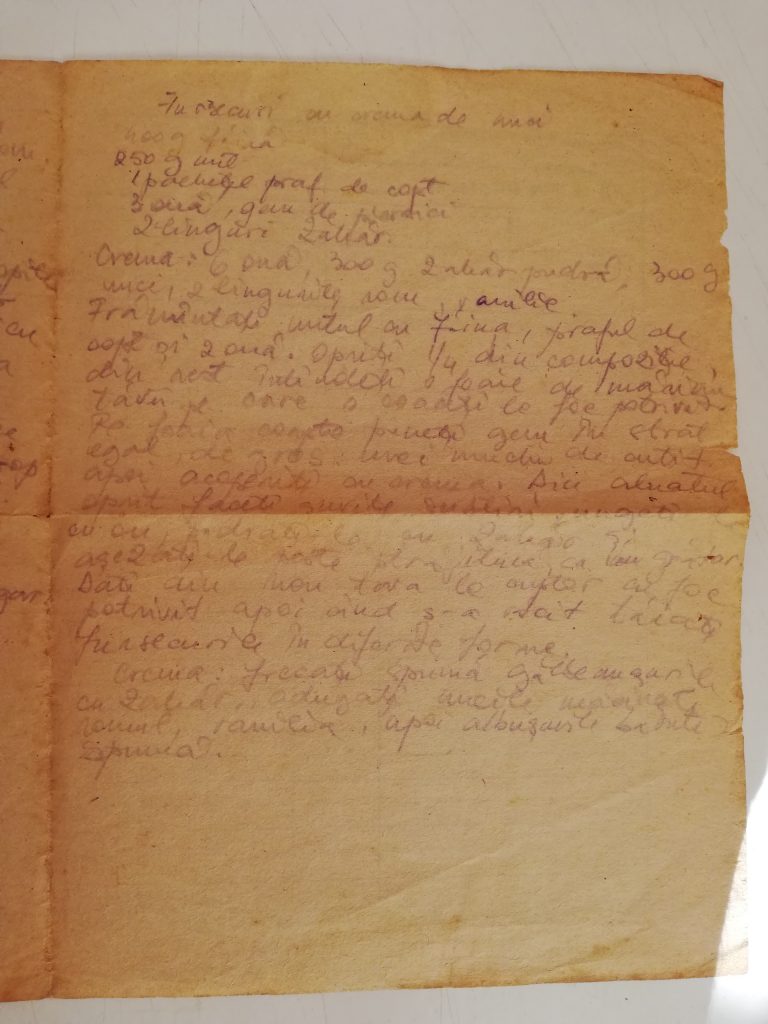 Fursecuri cu crema de nuci
400g făină
250 g unt
1 pachețel praf de copt
3 ouă, gem de
2 linguri zahăr.
Crema: 6 ouă, 300 g zahăr pudră, 300 g
nuci, 2 lingurițe rom, vanilie
Frământați untul cu făina, praful de
copt și 2 ouă. Opriți 1/4 din compoziție
din rest întindeți o foaie de mărimea
tăvii în care o coaceți la foc potrivit.
Pe foaia coaptă puneți gem în strat
egal de gros unei muchii de cuțit,
apoi acoperiți cu crema. Din aluatul
oprit faceți șuvițe subțiri ungeți
cu ou, pudrați-le cu zahăr și
așezați-le peste prăjitura, ca un grătar.
Dați din nou tava la cuptor cu foc
potrivit apoi când s-a răcit tăiați
fursecurile în diferite forme.
Crema: Frecați spumă gălbenușurile
cu zahăr, adugați nucile măcinate,
romul, vanilia, apoi albușurile bătute
spumă.